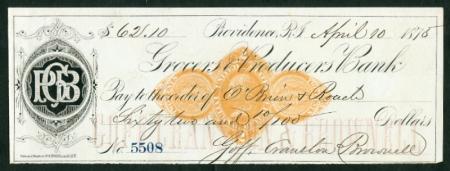 $62.10 Providence, R.I. April 10 1875
Grocers & Producers Bank
PGB
Pay to the order of O'Brien & Roach
Sixty two and 10/100 Dollars
No. 5508 Cranston Brownell